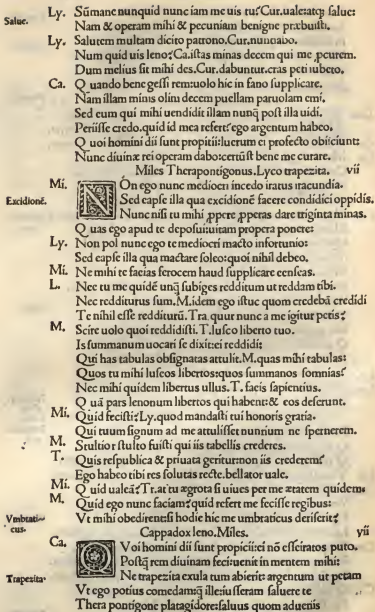 Ly. Sūmane nunquid nunc iam me uis tuī? Cur. uale: atq; salue:
Salue.
Nam & operam mihi & pecuniam benigne præbuisti.
Ly. Salutem multam dicito patrono. Cur. nunnabo.
Num quid uis leno? Ca. istas minas decem qui me pcurem.
Dum melius sit mihi des. Cur. dabuntur. cras peti iubeto.
Ca. Q uando bene gessi rem: uolo hic in fano supplicare.
Nam illam minis olim decem puellam paruolam emi.
Sed eum qui mihi uendidit illam nunq̄ post illa uidi.
Periisse credo. quid id mea refert? ego argentum habeo.
Q uoi homini dii sunt propitii: luerum ei profecto obiiciunt:
Nunc diuinæ rei operam dabo: certū st bene me curare.
Miles Therapontigonus. Lyco trapezita. vii
Mi. NOn ego nunc mediocri incedo iratus iracundia.
Excidionē.
Sed eapse illa qua excidionē facere condidici oppidis.
Nunc nisi tu mihi ppere pperas dare triginta minas.
Q uas ego apud te deposiui: uitam propera ponere:
Ly. Non pol nunc ego te mediocri macto infortunio:
Sed eapse illa qua mactare soleo: quoi nihil debeo.
Mi. Ne mihi te facias ferocem haud supplicare censeas.
L. Nec tu me quidē unq̄ subiges redditum ut reddam tibi.
Nec redditurus sum. M. idem ego istuc quom credebā credidi
Te nihil esse redditurū. Tra. quur nunc a me igitur petis?
M. Scire uolo quoi reddidisti. T. lusco liberto tuo.
Is summanum uocari se dixit: ei reddidi:
Qui has tabulas obsignatas attulit. M. quas mihi tabulas:
Quos tu mihi luscos libertos: quos summanos somnias?
Nec mihi quidem libertus ullus. T. facis sapientius.
Q uā pars lenonum libertos qui habent: & eos deserunt.
Mi. Quid fecisti? Ly. quod mandasti tui honoris gratia.
Qui tuum signum ad me attulisset nuntium ne spernerem.
M. Stultior stulto fuisti qui iis tabellis crederes.
T. Quis respublica & priuata geritur: non iis crederem?
Ego habeo tibi res solutas recte. bellator uale.
Mi. Q uid ualeā? Tr. at tu ægrota si uiues per me ætatem quidem.
M. Quid ego nunc faciam? quid refert me fecisse regibus:
Vmbraticus.
Vt mihi obedirent si hodie hic me umbraticus deriserit?
Cappadox leno. Miles. vii
Ca. QVoi homini dii sunt propitii: ei nō esse iratos puto.
Postq̄ rem diuinam feci: uenit in mentem mihi:
Trapezita
Ne trapezita exula tum abierit: argentum ut petam
Vt ego potius comedam q̄ ille: iusseram saluere te
Thera pontigone platagidore: saluus quom aduenis